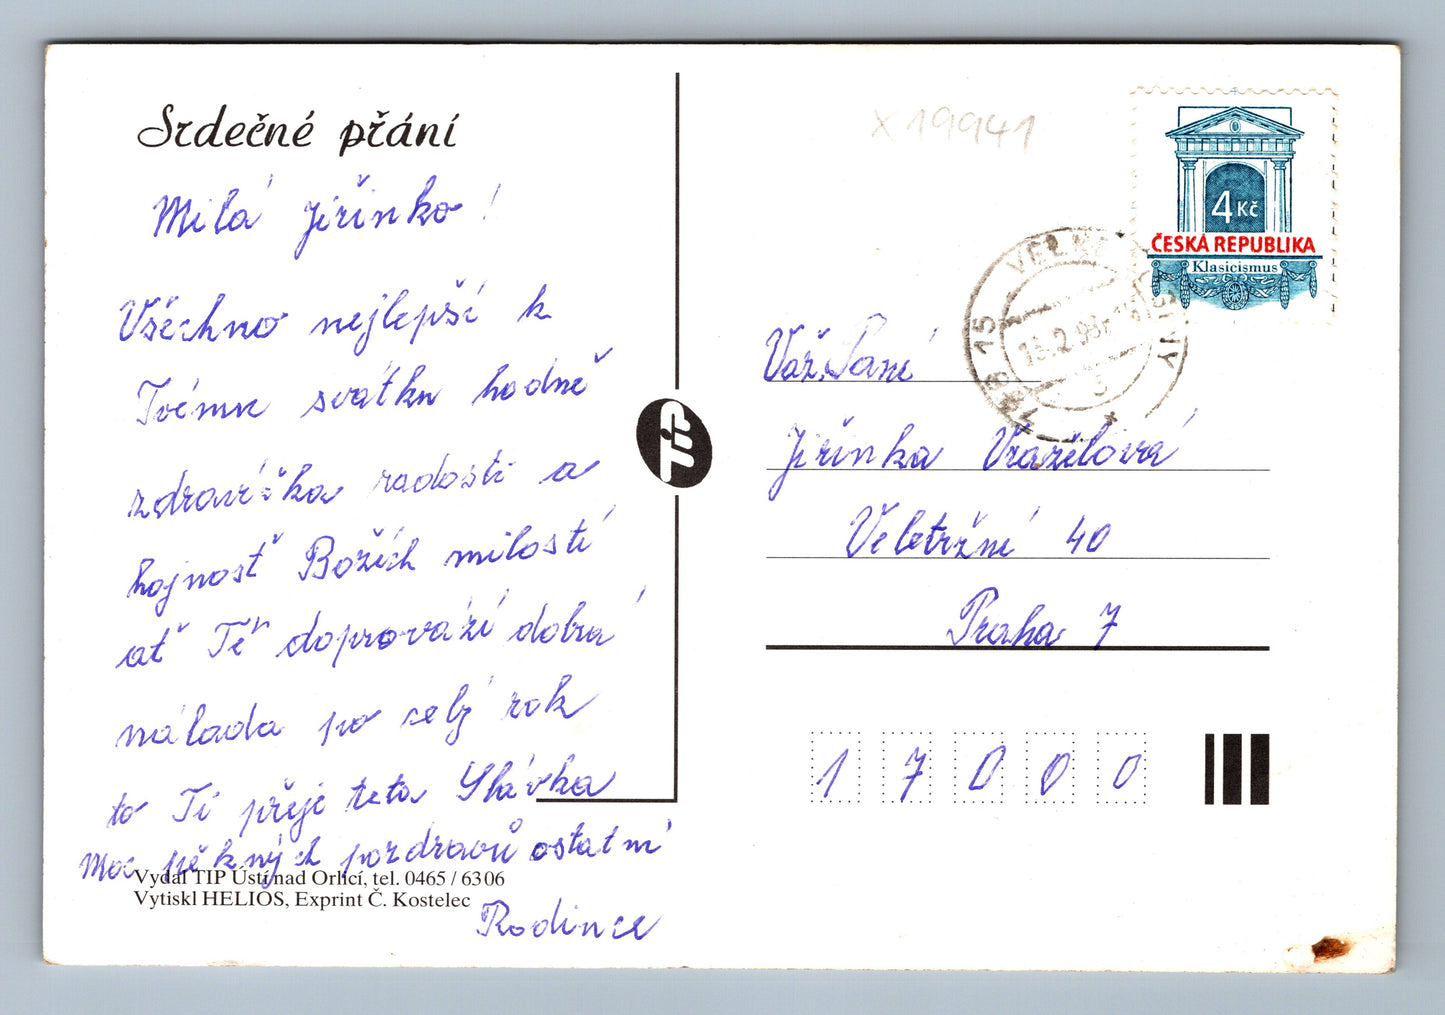 Srdečné přání
Milá Jiřinko!
Všechno nejlepší k
Tvému svátku hodně
zdravíčka radosti a
hojnosť Božích milostí
ať Tě doprovází dobrá
nálada po celý rok
to Ti přeje teta Slávka
Moc pěkných pozdravů ostatní
Rodince
Vydal TIP Ústí nad Orlicí, tel. 0465 / 6306
Vytiskl HELIOS, Exprint Č. Kostelec
TIP
X19941
4 Kč
ČESKÁ REPUBLIKA
Klasicismus
Váž. Paní
Jiřinka Vražilová
Veletržní 40
Praha 7
17000